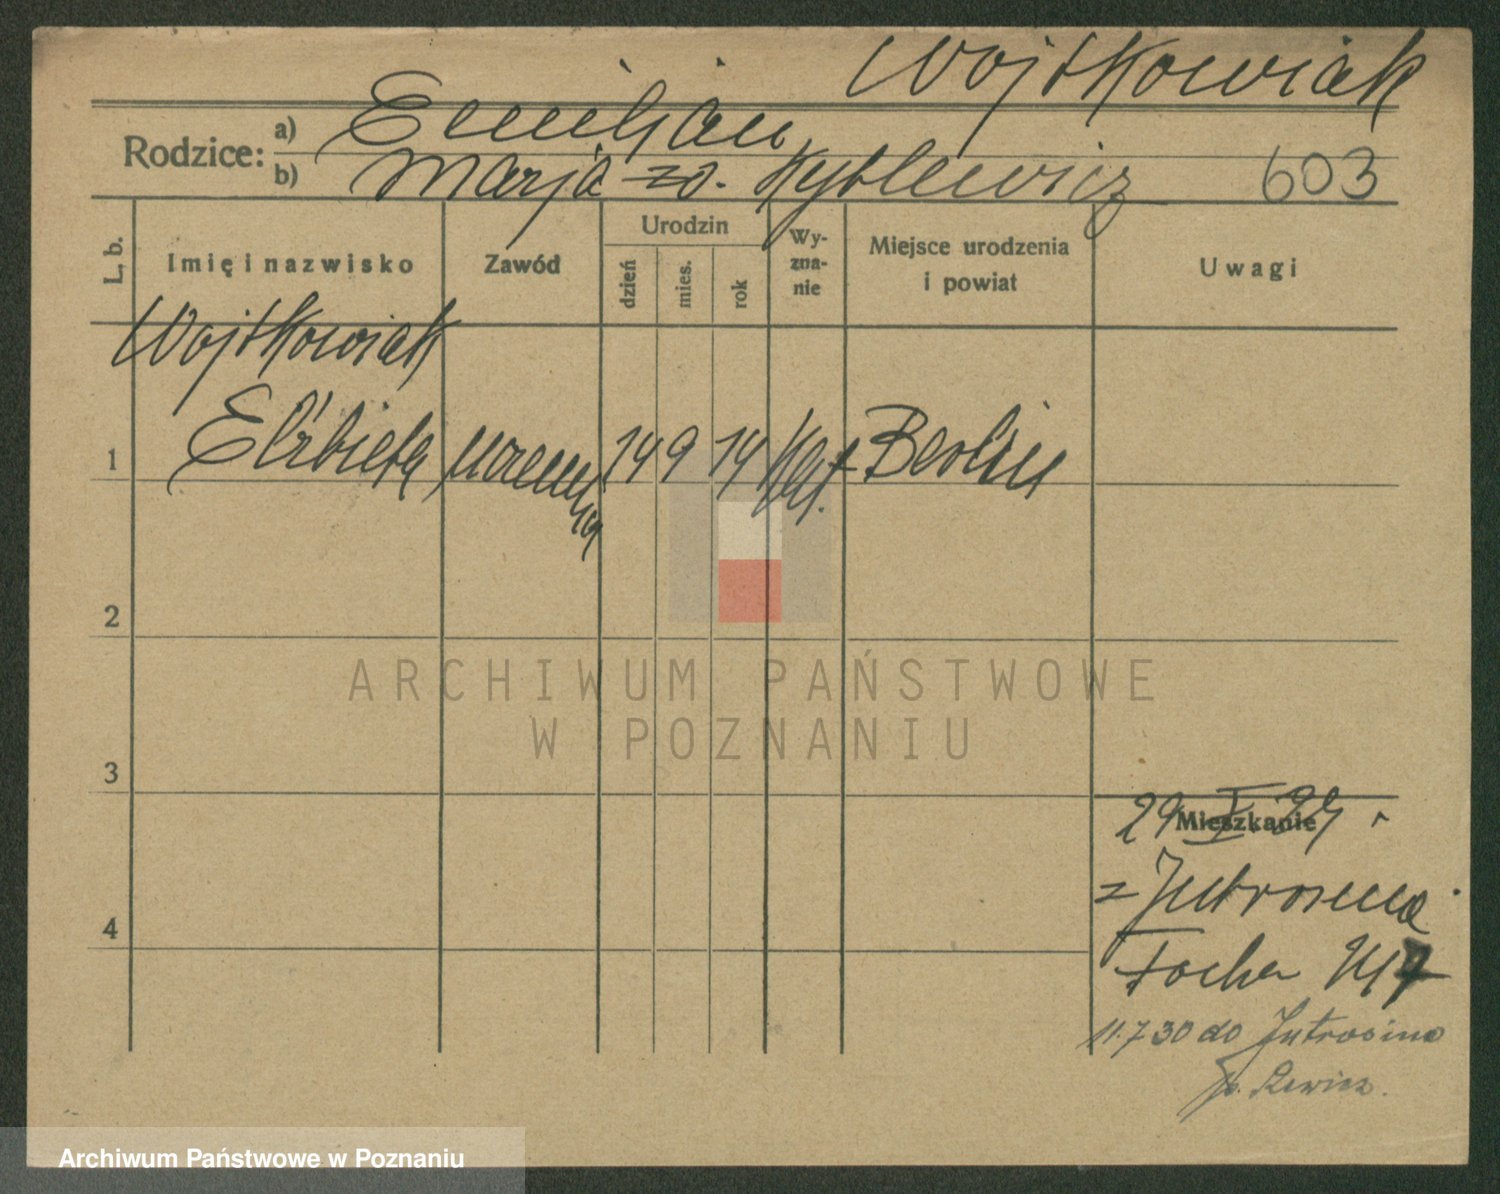 Wojtkowiak
Rodzice: a) Emiljan
b) Marja zd. Kyblewicz 603
L. b. Imię i nazwisko Zawód Urodzin dzień mies. rok Wyznanie Miejsce urodzenia i powiat Uwagi
Wojtkowiak
1 Elżbieta uczennica 14 9 14 kat. Berlin
2
ARCHIWUM PAŃSTWOWE
W POZNANIU
3
Mieszkanie
29 I
z Jutrosina
4
Focha
11.7.30 do Jutrosina
p. Rawicz.
Archiwum Państwowe w Poznaniu